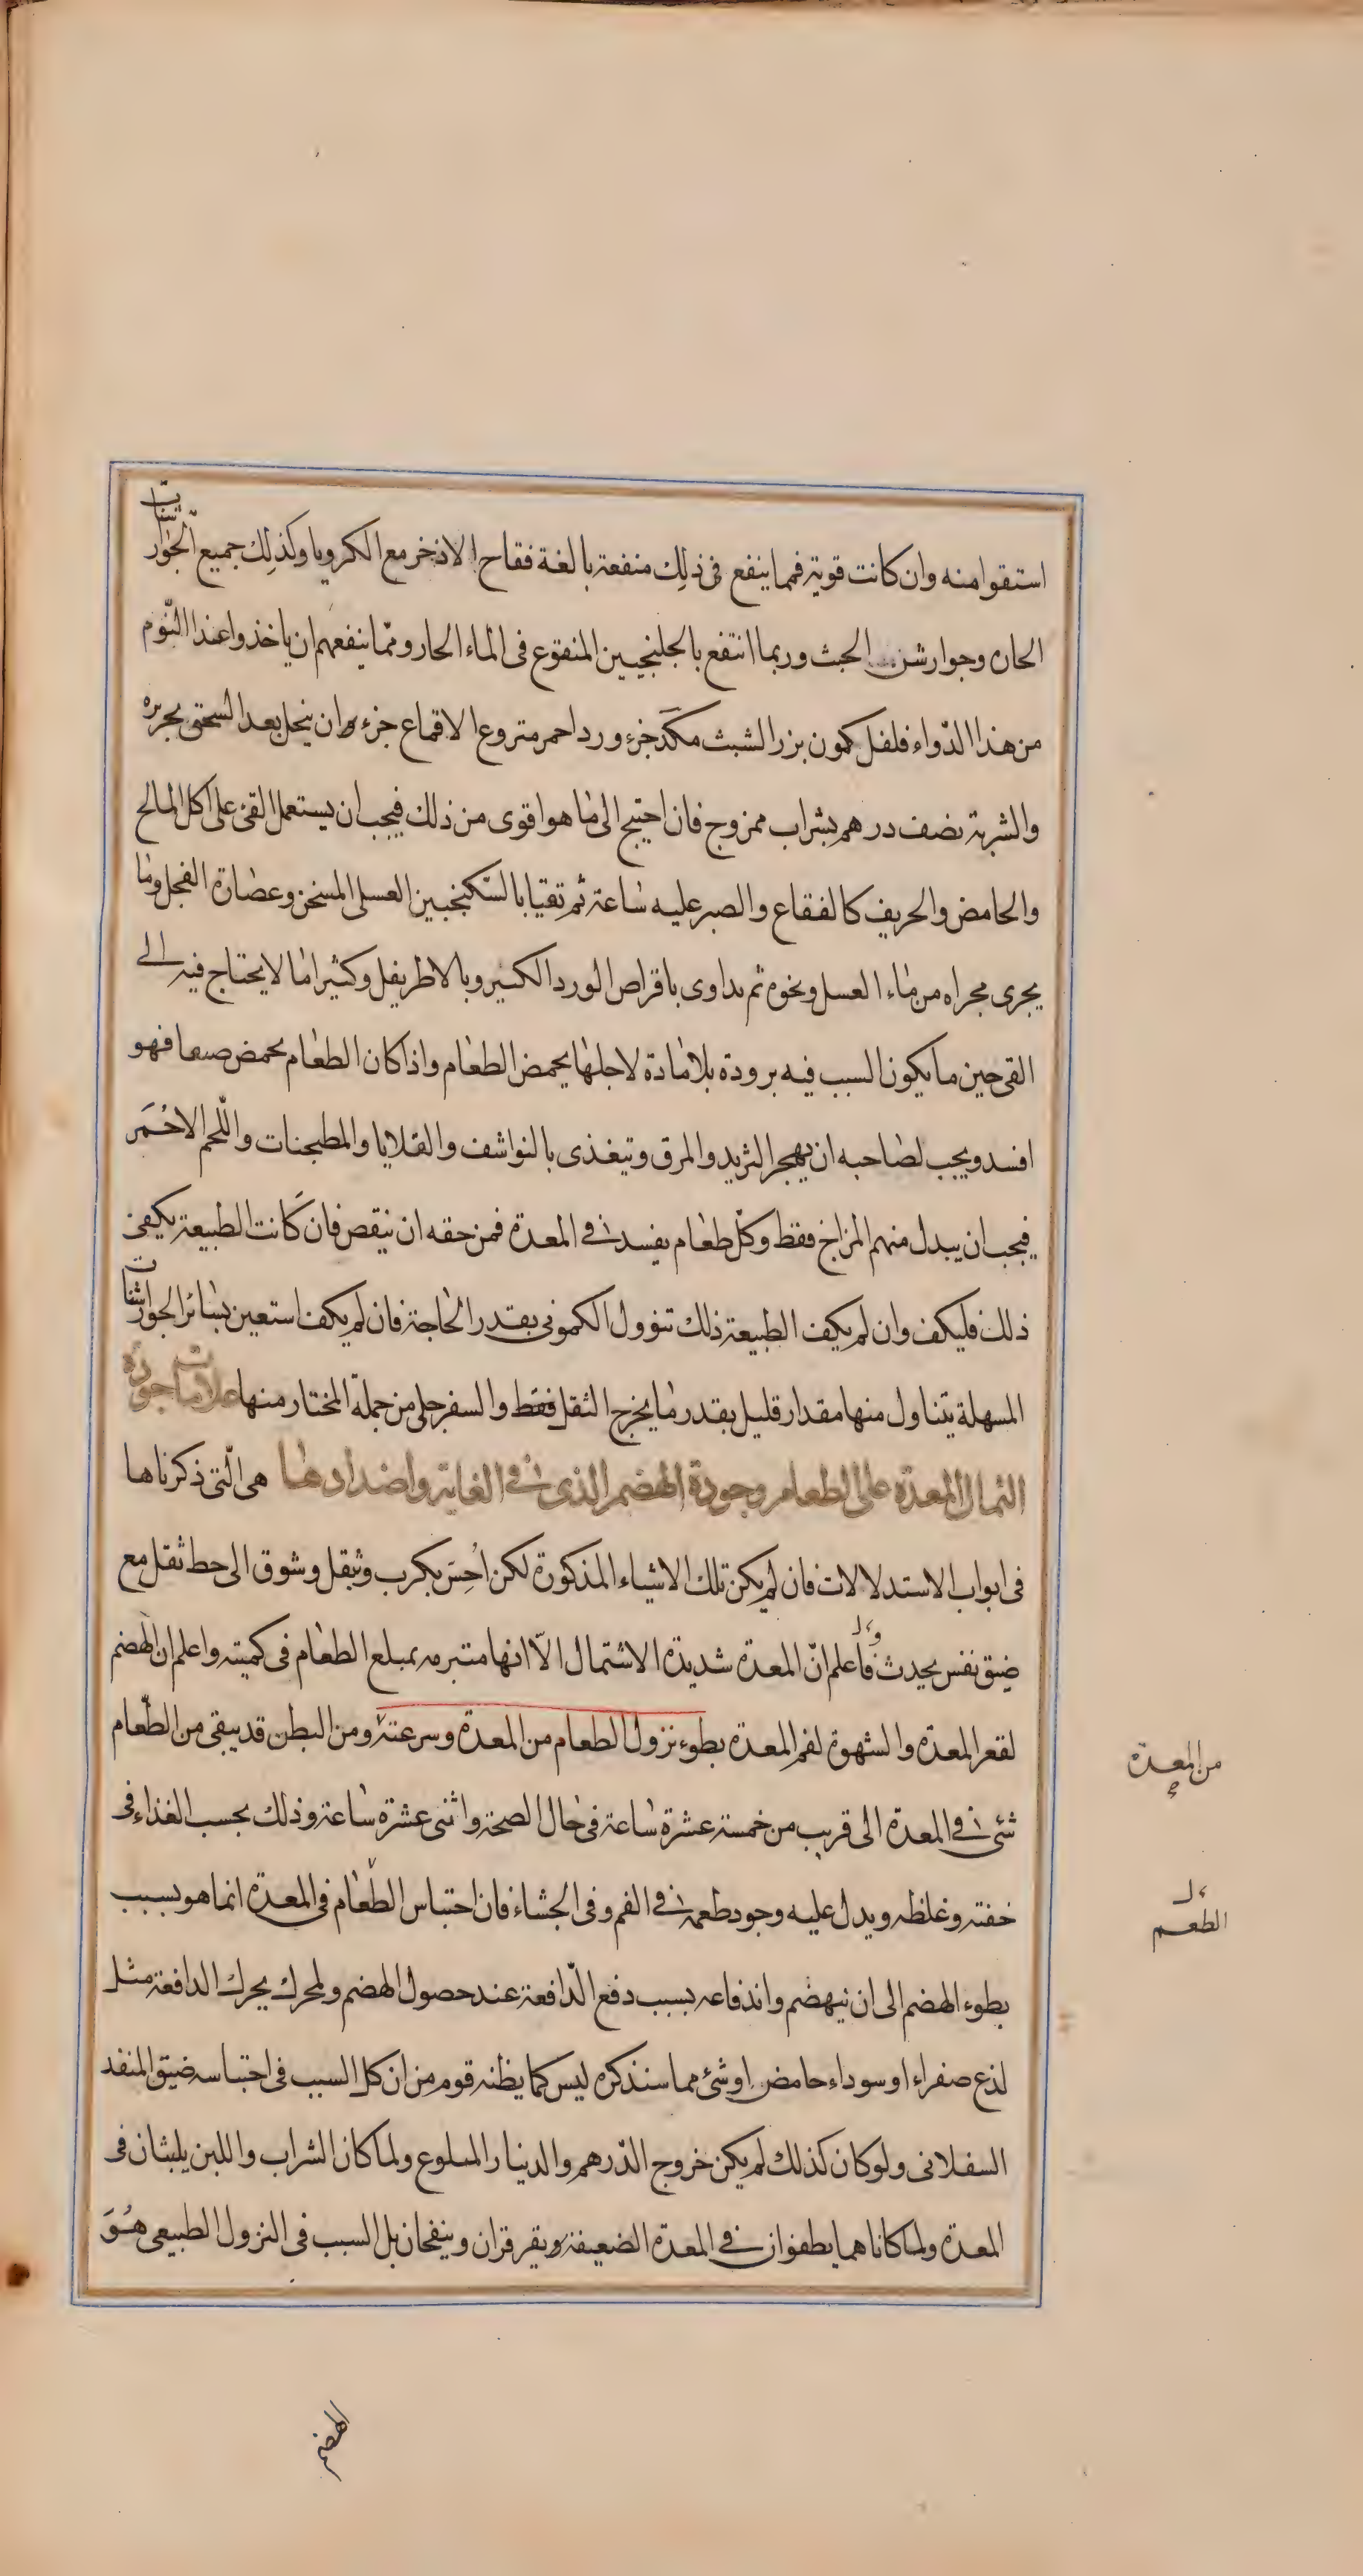 استقوا منه وان كانت قوية فمما ينفع فى ذلك منفعة بالغة فقاح الاذخر مع الكرويا وكذلك جميع الجوارشنات
الحارة وجوارشن الخبث وربما انتفع بالجلنجبين المنقوع فى الماء الحار ومما ينفعهم ان ياخذوا عند النوم
من هذا الدواء فلفل كمون بزر الشبث مكد جزء ورد احمر منزوع الاقماع جزء وان ينخل بعد السحق بحريره
والشربة نصف درهم بشراب ممزوج فان احتيج الى ما هو اقوى من ذلك فيجب ان يستعمل القئ على اكل المالح
والحامض والحريف كالفقاع والصبر عليه ساعة ثم تقيا بالسكنجبين العسلى المسخن وعصارة الفجل وما
يجرى مجراه من ماء العسل ونحوه ثم يداوى باقراص الورد الكبير وبالاطريفل وكثيرا ما لا يحتاج فيه الى
القئ حين ما يكون السبب فيه برودة بلا مادة لاجلها يحمض الطعام واذا كان الطعام يحمض صيفا فهو
افسد ويجب لصاحبه ان يهجر الثريد والمرق ويتغذى بالنواشف والقلايا والمطجنات واللحم الاحمر
فيجب ان يبدل منهم المزاج فقط وكل طعام يفسد فى المعدة فمن حقه ان ينقص فان كانت الطبيعة يكفى
ذلك فليكف وان لم يكف الطبيعة ذلك تنوول الكمونى بقدر الحاجة فان لم يكف استعين بسائر الجوارشنات
المسهلة يتناول منها مقدار قليل بقدر ما يخرج الثقل فقط والسفرجلى من جملة المختار منها علامات جودة
اشتمال المعدة على الطعام وجودة الهضم الذى فى الغاية واضدادها هى التى ذكرناها
فى ابواب الاستدلالات فان لم يكن تلك الاشياء المذكورة لكن احس بكرب وثقل وشوق الى حط ثقل مع
ضيق نفس يحدث فاعلم ان المعدة شديدة الاشتمال الا انها متبرمه بمبلع الطعام فى كميته واعلم ان الهضم
لقعر المعدة والشهوة لفم المعدة بطوء نزول الطعام من المعدة وسرعته ومن البطن قد يبقى من الطعام
شئ فى المعدة الى قريب من خمسة عشرة ساعة فى حال الصحة واثنى عشرة ساعة وذلك بحسب الغذاء فى
خفته وغلظه ويدل عليه وجود طعمه فى الفم وفى الجشاء فان احتباس الطعام فى المعدة انما هو بسبب
بطوء الهضم الى ان ينهضم واندفاعه بسبب دفع الدافعة عند حصول الهضم ولمحرك يحرك الدافعة مثل
لذع صفراء او سوداء حامض او شئ مما سنذكره ليس كما يظنه قوم من ان كل السبب فى احتباسه ضيق المنفد
السفلانى ولو كان كذلك لم يكن خروج الدرهم والدينار المبلوع ولما كان الشراب واللبن يلبثان فى
المعدة ولما كانا هما يطفوان فى المعدة الضعيفة ويقرقران وينفخان بل السبب فى النزول الطبيعى هو
من المعدة
الطعم
الهضم